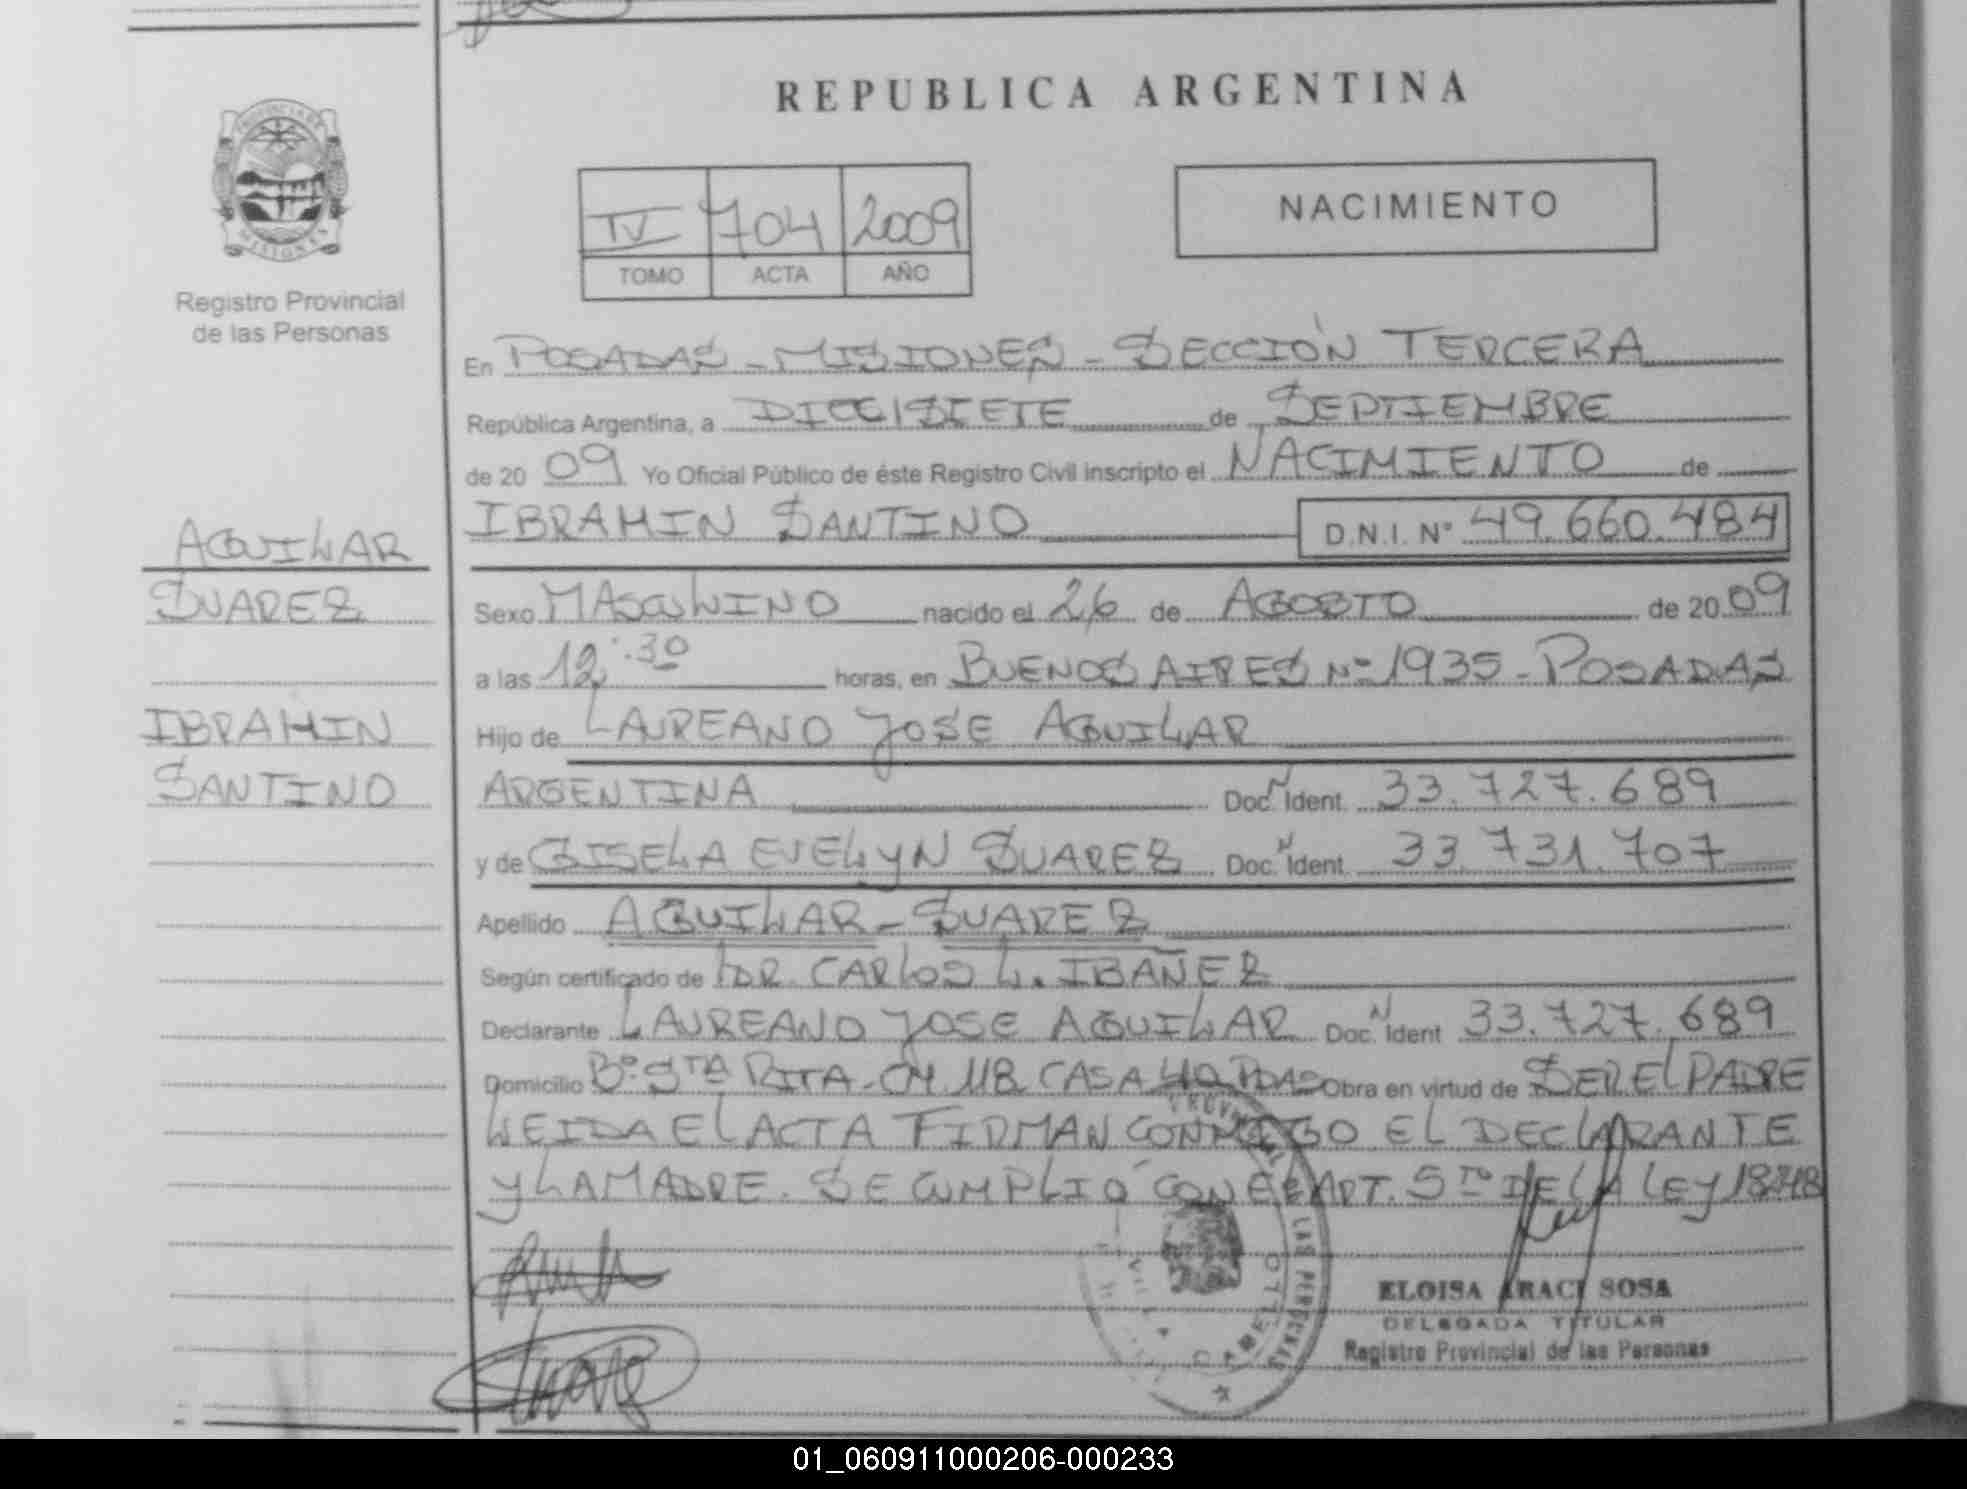 REPUBLICA ARGENTINA
PROVINCIA DE
MISIONES
Registro Provincial
de las Personas
IV 704 2009
TOMO ACTA AÑO
NACIMIENTO
En POSADAS - MISIONES - SECCIÓN TERCERA
República Argentina, a DIECISIETE de SEPTIEMBRE
de 20 09 Yo Oficial Público de éste Registro Civil inscripto el NACIMIENTO de
IBRAHIN SANTINO D.N.I. N° 49.660.484
AGUILAR
SUAREZ
IBRAHIN
SANTINO
Sexo MASCULINO nacido el 26 de AGOSTO de 20 09
a las 12:30 horas, en BUENOS AIRES N° 1935 - POSADAS
Hijo de LAUREANO JOSE AGUILAR
ARGENTINA Doc. N Ident. 33.727.689
y de GISELA EVELYN SUAREZ Doc. N Ident. 33.731.707
Apellido AGUILAR - SUAREZ
Según certificado de DR. CARLOS L. IBAÑEZ
Declarante LAUREANO JOSE AGUILAR Doc. N Ident 33.727.689
Domicilio B° STA RITA - CH 118 CASA 40 PDAS Obra en virtud de SER EL PADRE
LEIDA EL ACTA FIRMAN CONMIGO EL DECLARANTE
Y LA MADRE. SE CUMPLIÓ CON EL ART. 5TO DE LA LEY 18248
LAS PERSONAS
ELOISA ARACI SOSA
DELEGADA TITULAR
Registro Provincial de las Personas
01_060911000206-000233